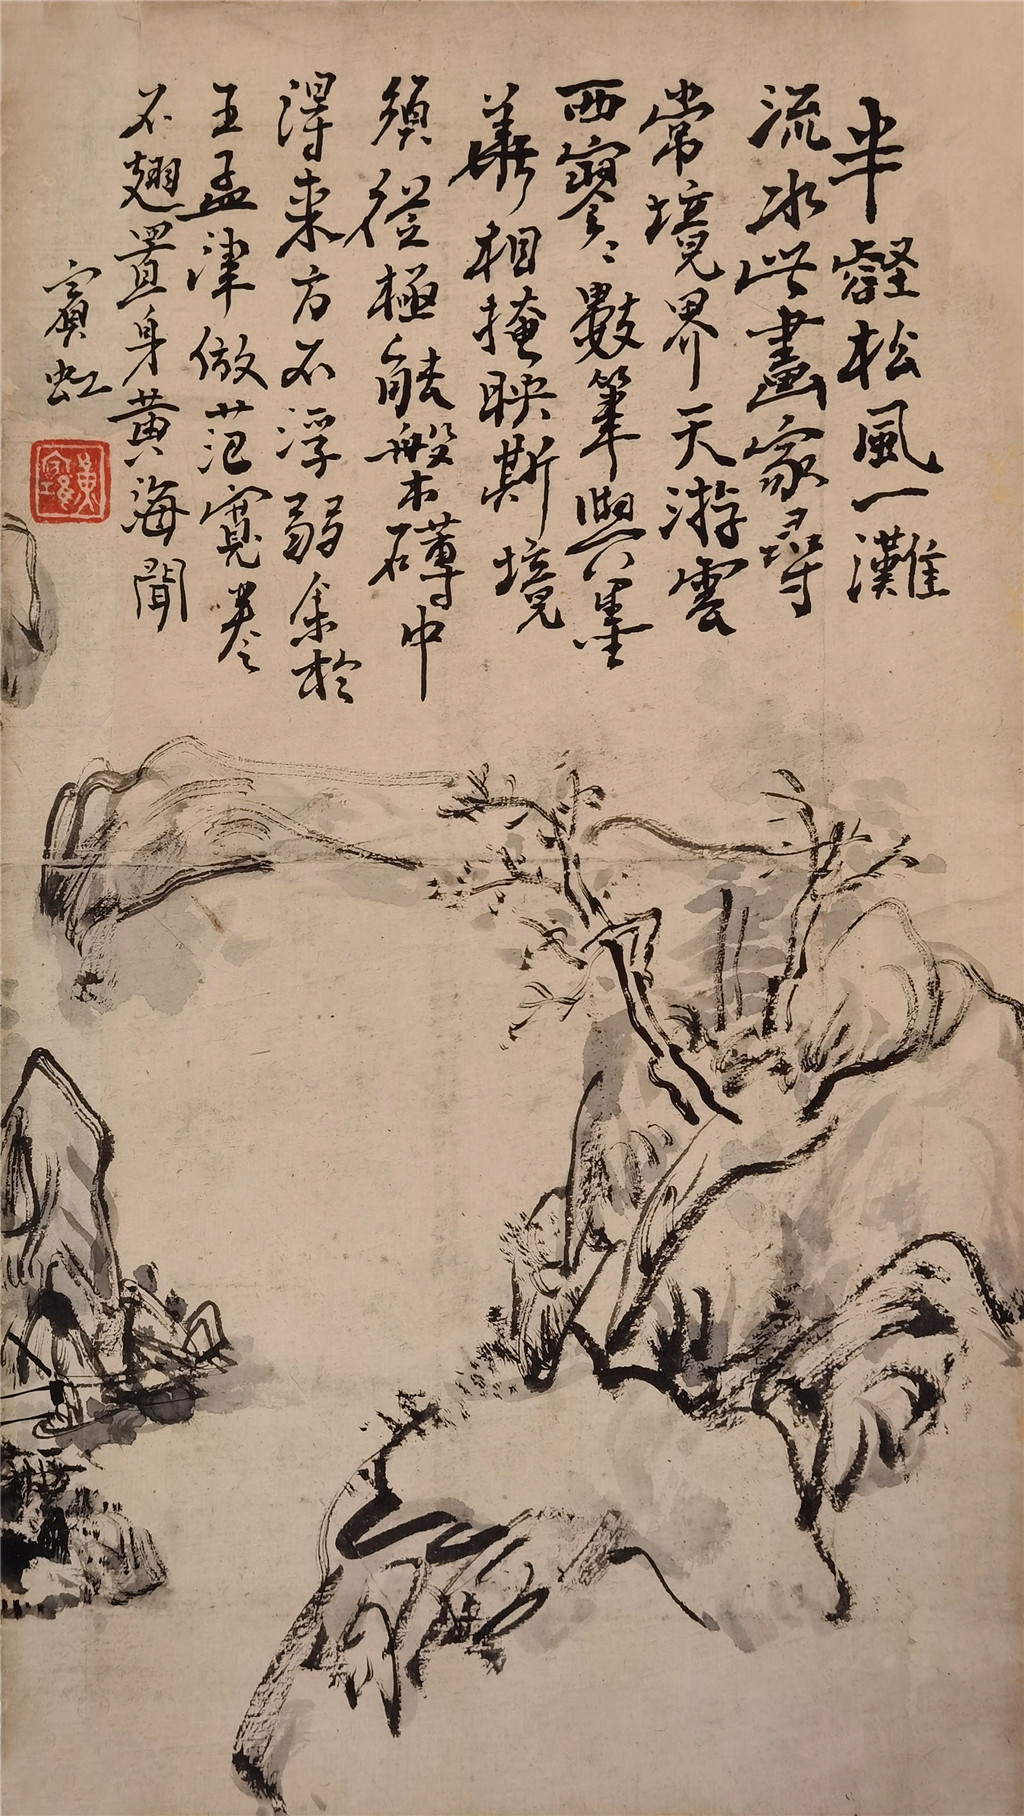 半壑松風一灘
流水此畫家尋
常境界天游雲
西寥〻數筆與墨
華相掩映斯境
須從極能槃礴中
得來方不浮弱余於
王孟津倣范寬卷
不翅置身黃海間
賓虹
黃賓虹